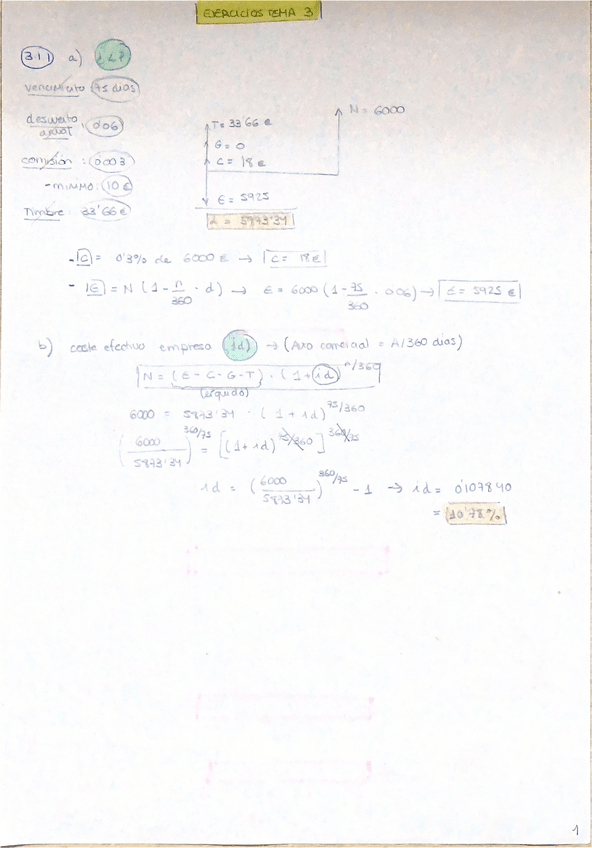 EJERCICIOS TEMA 3
3.1.1 a) ¿L?
vencimiento: 75 días
descuento anual: 0'06
comisión: 0'003
- mínimo: 10 €
Timbre: 33'66 €
N = 6000
T = 33'66 €
G = 0
C = 18 €
E = 5925
L = 5873'34
- C = 0'3% de 6000 € → C = 18 €
- E = N (1 - n/360 · d) → E = 6000 (1 - 75/360 · 0'06) → E = 5925 €
b) coste efectivo empresa (id) → (Año comercial = A/360 días)
N = (E - C - G - T) · (1 + id)^n/360
(líquido)
6000 = 5873'34 · (1 + id)^75/360
(6000/5873'34)^360/75 = [(1 + id)^75/360]^360/75
id = (6000/5873'34)^360/75 - 1 → id = 0'107840
= 10'78%
1